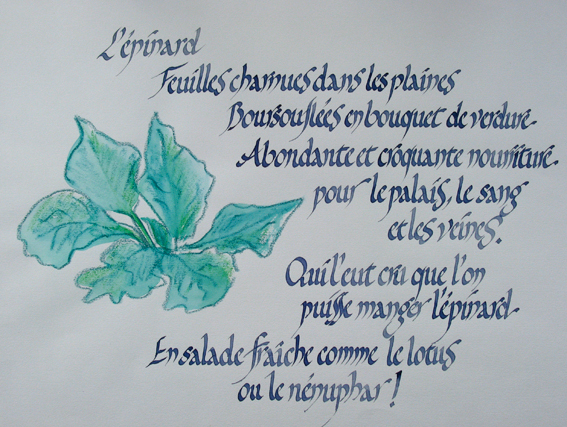 L'épinard
Feuilles charnues dans les plaines
Boursouflées en bouquet de verdure.
Abondante et croquante nourriture
pour le palais, le sang
et les veines.
Qui l'eut cru que l'on
puisse manger l'épinard.
En salade fraîche comme le lotus
ou le nénuphar !